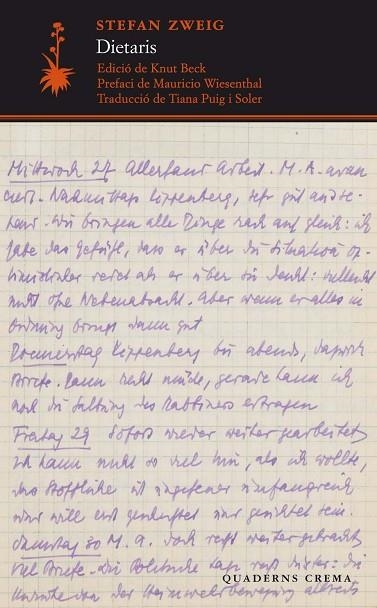 STEFAN ZWEIG
Dietaris
Edició de Knut Beck
Prefaci de Mauricio Wiesenthal
Traducció de Tiana Puig i Soler
Mittwoch 27 Allerhand Arbeit. M. A. avan
ciert. Nachmittags Kippenberg, sehr gut und se-
wir bringen alle Dinge rasch auf gleich: ich
habe das Gefühl, dass er über die Situation op-
timistischer redet als er über sie denkt: vielleicht
nicht ohne Nebenabsicht. Aber wenn er alles in
Ordnung bringt dann gut
Donnerstag Kippenberg bis abends, dazwisch
Briefe. Dann recht müde, gerade kann ich
noch die des Rabbiners ertragen
Freitag 29 Sofort wieder weitergearbeitet
Ich kann nicht so viel tun, als ich wollte,
das Stoffliche ist ungeheuer umfangreich
und will erst sein.
Samstag 30 M. A. doch recht weitergebracht
Viel Briefe. Die politische Lage recht düster: die
der Heimwehrbewegung
QUADERNS CREMA